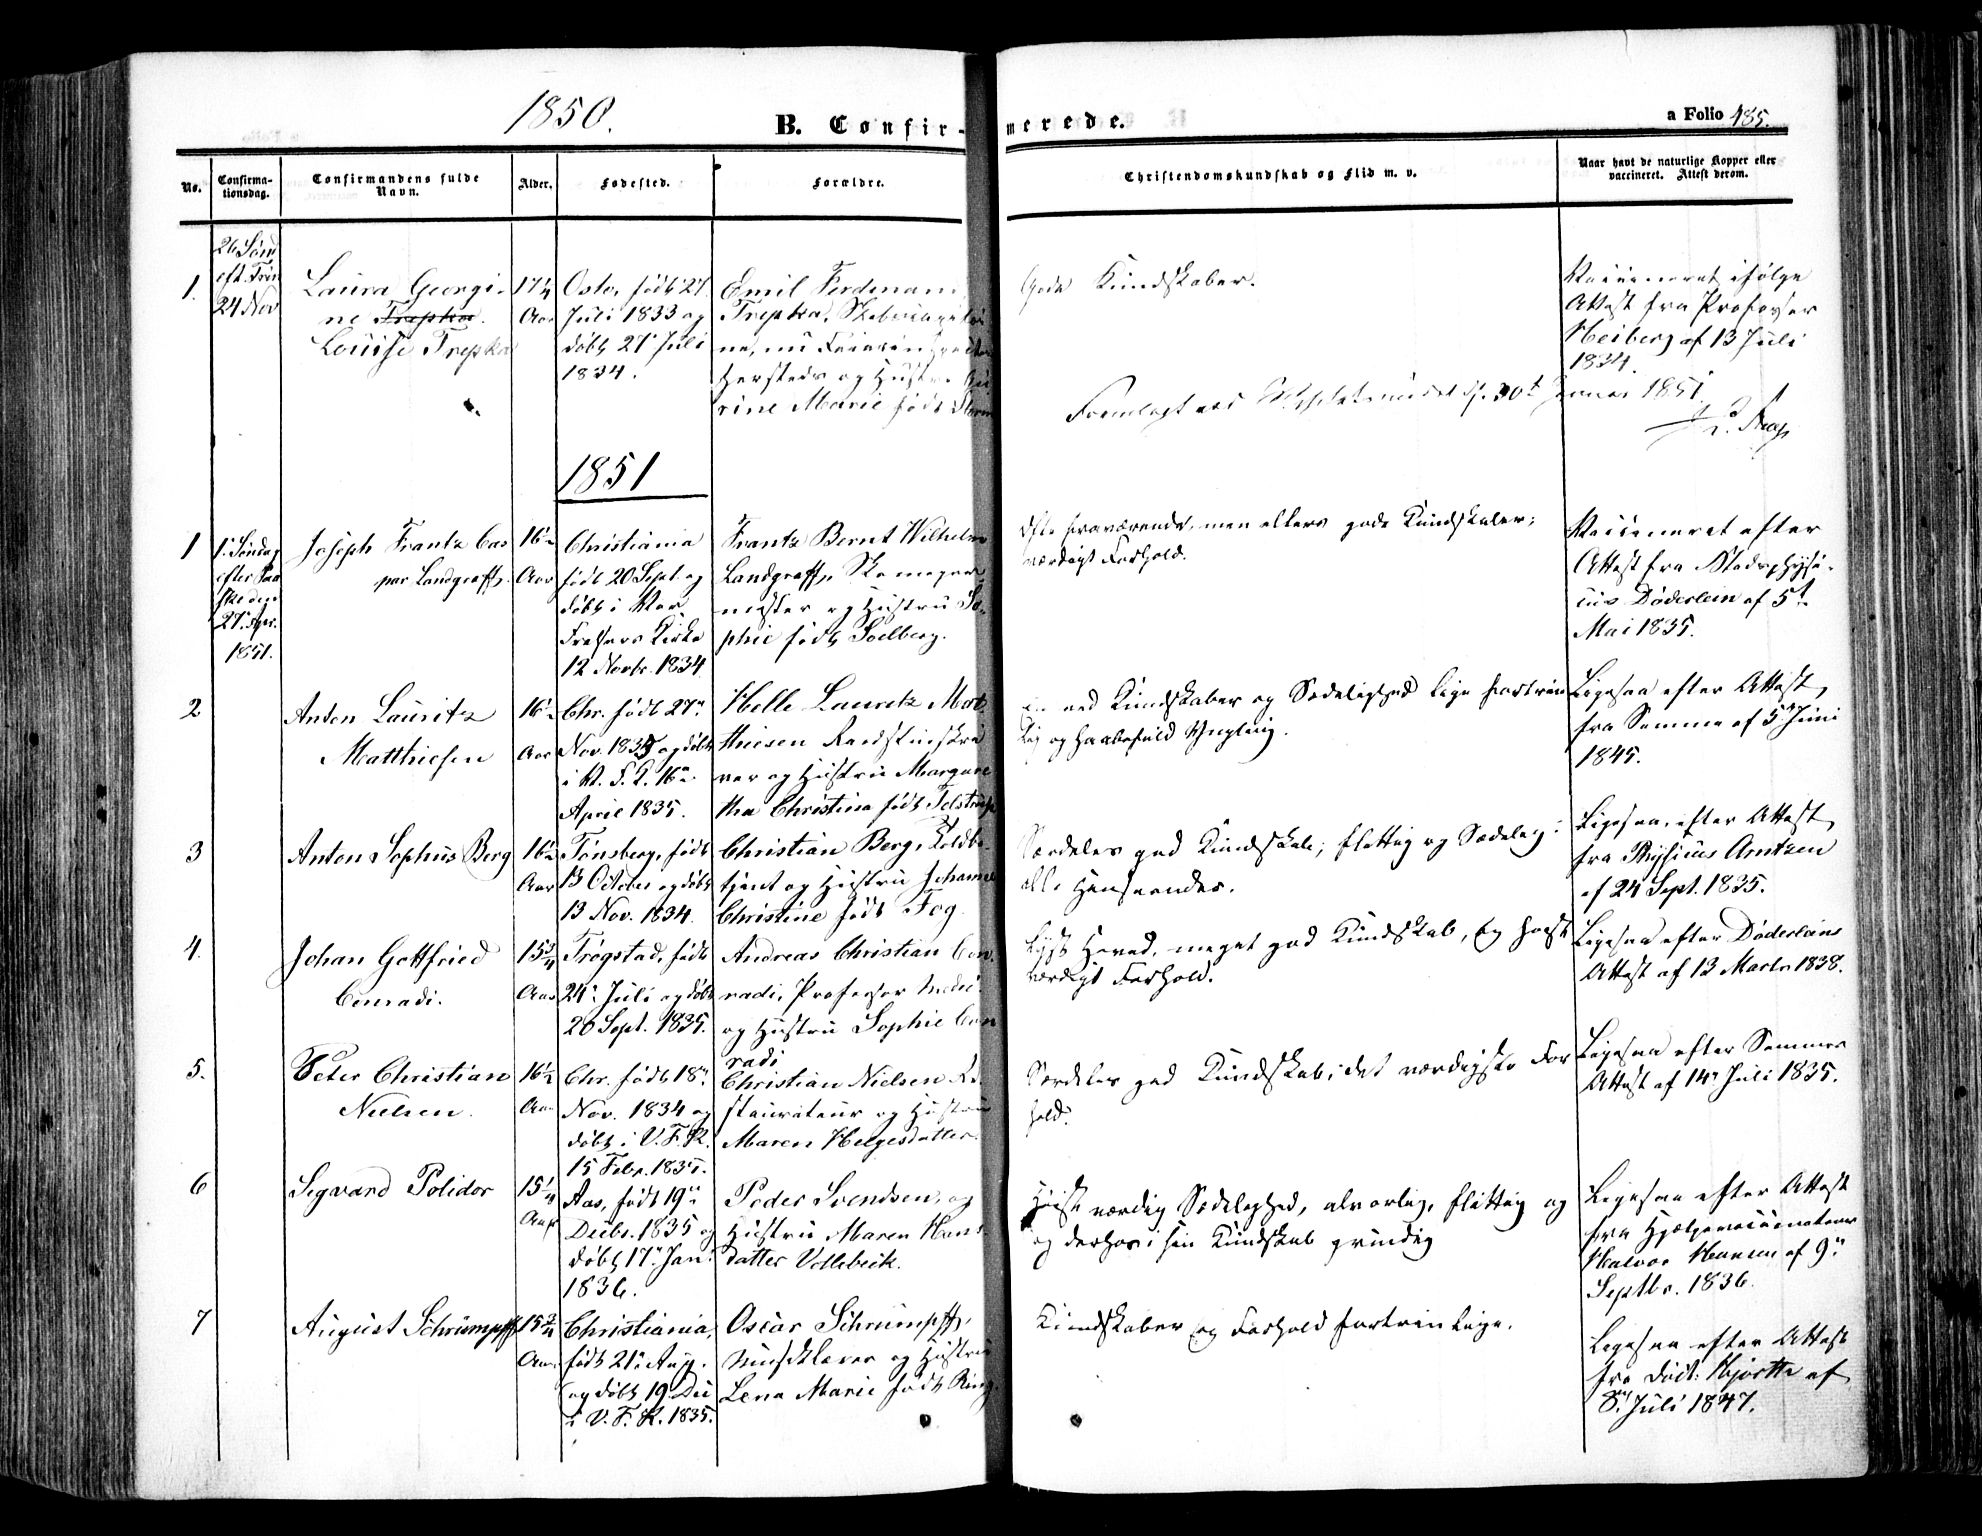 1850.
B. Confirmerede.
a Folio 185.
No.
Confirmationsdag.
Confirmandens fulde Navn.
Alder.
Fødested.
Forældre.
Christendomskundskab og Flid m. v.
Naar havt de naturlige Kopper eller vaccineret. Attest derom.
1.
26 Sønd
eft. Trin
24 Nov
Laura Georgi-
ne Trepka.
Louise Trepka
17¼
Aar
Oslo, født 27
Juli 1833 og
døbt 27 Juli
1834.
Emil Ferdinand
Trepka,
og Hustru
rine Marie født
Gode Kundskaber.
Vaccineret ifølge
Attest fra Professor
Heiberg af 13 Juli
1834.
Fremlagt ved 30t Januar 1851.
1851
1
1. Søndag
efter Paa
ske den
27. Apr.
1851.
Joseph Frantz Cas
per Landgraff.
16½
Aar
Christiania
født 20 Sept. og
døbt i Vor
Frelsers Kirke
12 Novbr. 1834
Frantz Bernt Wilhelm
Landgraff, Skomager
mester og Hustru So-
phie født Solberg.
Ofte fraværende, men ellers gode Kundskaber;
værdigt Forhold.
Vaccineret efter
Attest fra Stadsphysi-
cus Døderlein af 5t
Mai 1835.
2
Anton Lauritz
Matthiesen
16½
Aar
Chr. født 27n
Nov. 1834 og døbt
i V. F. K. 16n
April 1835.
Helle Lauritz Mat
thiesen Raadstueskri
ver og Hustru Margare
tha Christina født
ved Kundskaber og Sædelighed lige fortrin
lig og haabefuld Yngling.
Ligesaa efter Attest
fra Samme af 5n Juni
1845.
3
Anton Sophus Berg
16½
Aar
Tønsberg, født
13 October og døbt
13 Nov. 1834.
Christian Berg, Toldbe
tjent og Hustru Johanne
Christine født Fog.
Særdeles god Kundskab; flittig og sædelig i
alle Henseender.
Ligesaa, efter Attest
fra Physicus Arntzen
af 24 Sept. 1835.
4.
Johan Gottfried
Conradi.
15¾
Aar
Trøgstad, født
24n Juli og døbt
20 Sept. 1835.
Andreas Christian Con
radi, Professor medic.
og Hustru Sophie Con
radi
Lyst Hoved, meget god Kundskab, og høist
værdigt Forhold.
Ligesaa efter Døderleins
Attest af 13 Marts 1838.
5.
Peter Christian
Nielsen.
16½
Aar
Chr. født 18n
Nov. 1834 og
døbt i V. F. K.
15 Febr. 1835.
Christian Nielsen Re-
staurateur og Hustru
Maren Helgesdatter.
Særdeles god Kundskab; det værdigste For
hold.
Ligesaa efter Sammes
Attest af 14n Juli 1835.
6
Sigvard Polidor
15¼
Aar
Aas, født 19n
Decbr. 1835 og
døbt 17n Jan.
1836.
Peder Svendsen, og
Hustru Maren Hans-
datter Vollebæk.
Høist værdig Sædelighed, alvorlig, flittig og
og derhos i sin Kundskab grundig
Ligesaa efter Attest
fra Hjælpevaccinateur
Halvor Hansen af 9n
Septbr. 1836.
7
August Schrumpff
15¾
Aar
Christiania,
født 21n Aug.
og døbt 19 Dec
i V. F. K. 1835.
Oscar Schrumpff,
Musiklærer og Hustru
Lena Marie født Ring.
Kundskaber og Forhold fortrinlige.
Ligesaa efter Attest
fra Doct. Hjorth af
8n Juli 1847.